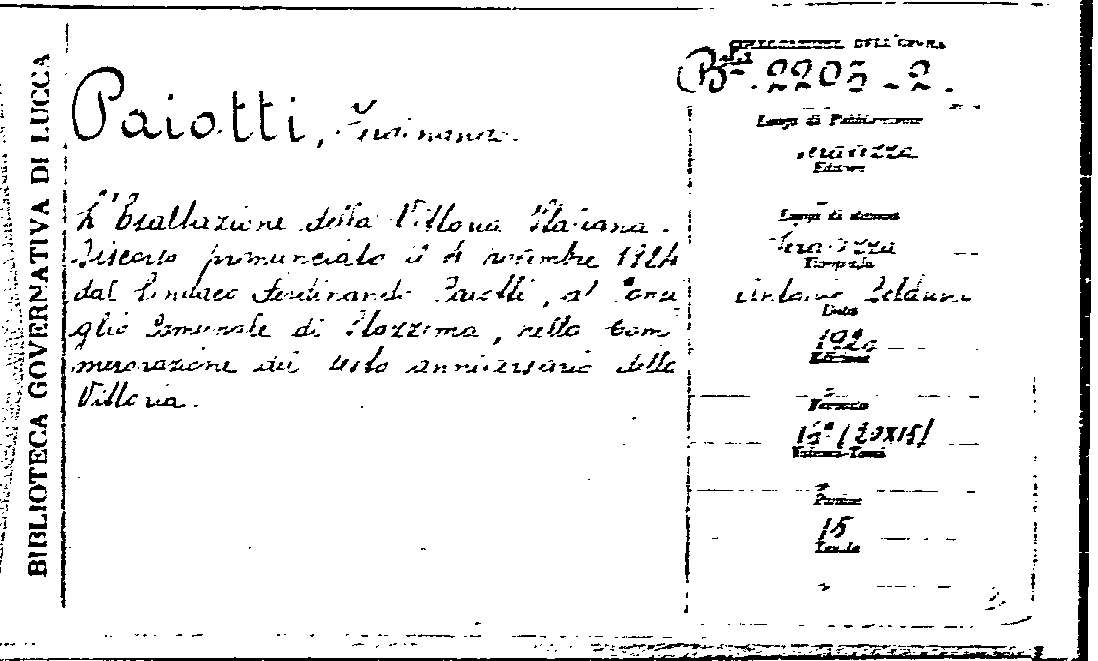 BIBLIOTECA GOVERNATIVA DI LUCCA
Paiotti, Ferdinando.
L'Esaltazione della Vittoria Italiana.
Discorso pronunciato il 4 novembre 1924
dal Sindaco Ferdinando Paiotti, al Consi
glio Comunale di Stazzema, nella Com
memorazione del sesto anniversario della
Vittoria.
DELL'OPERA
2205-2.
Luogo di Pubblicazione
Seravezza
Editore
Luogo di stampa
Seravezza
Tipografia
Antonio
Data
Edizione
Formato
(20X15)
Volumi-Tomi
Pagine
15
Tavole